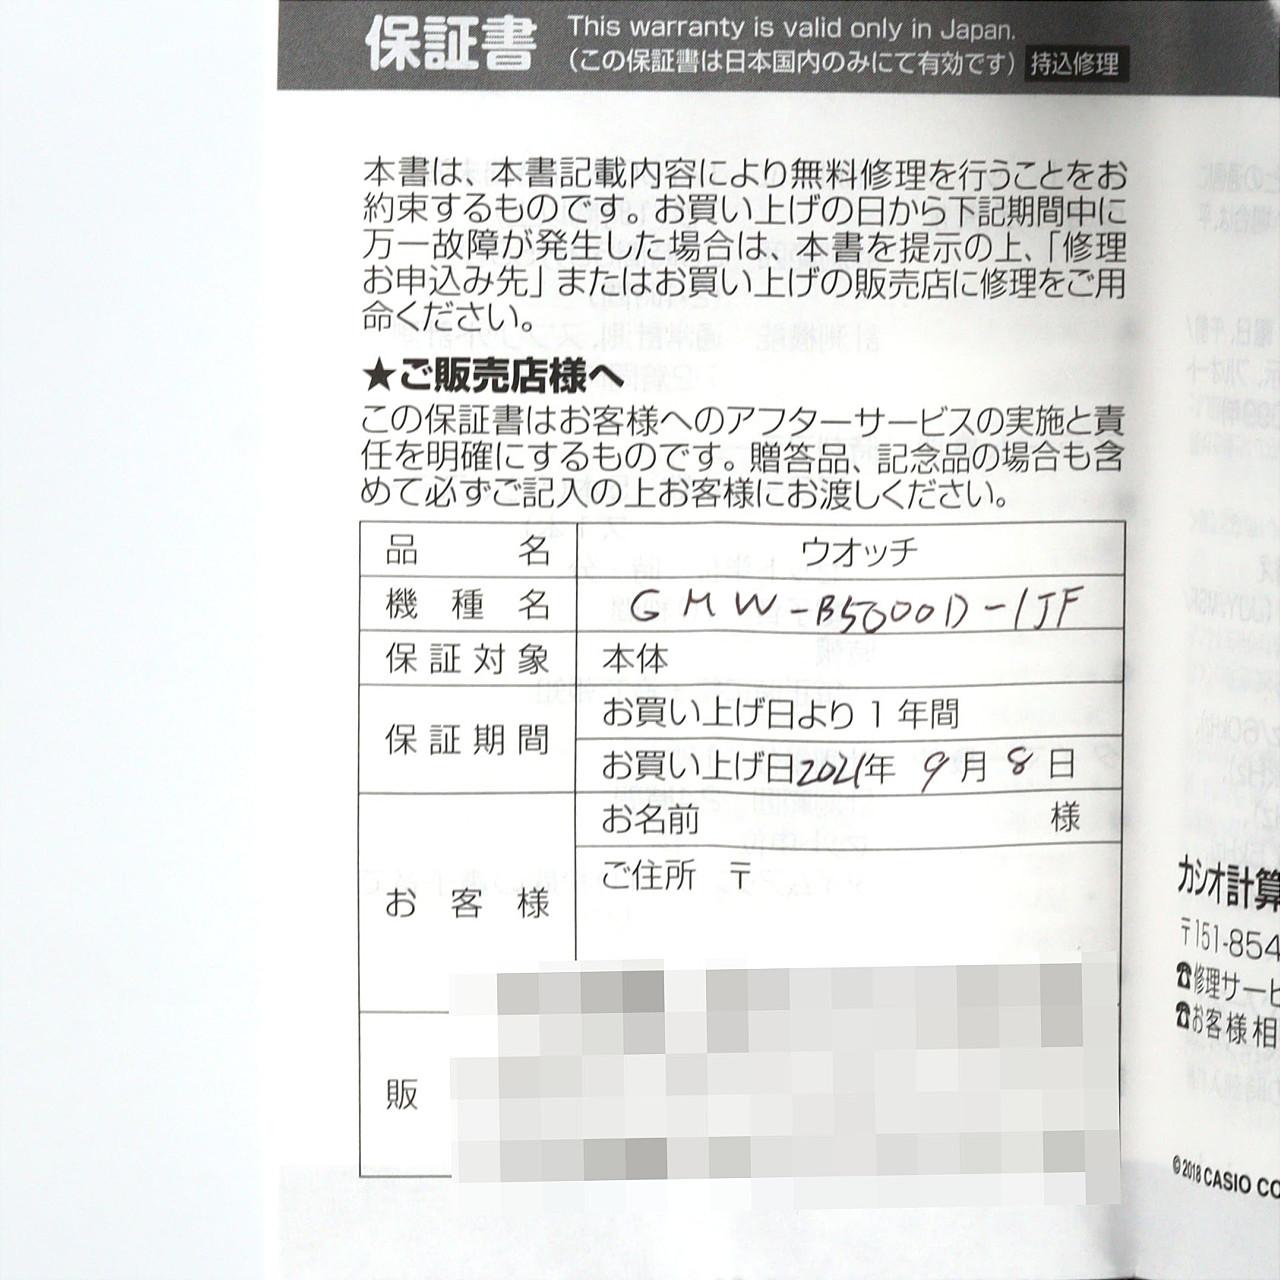 保証書
This warranty is valid only in Japan.
（この保証書は日本国内のみにて有効です）持込修理
本書は、本書記載内容により無料修理を行うことをお
約束するものです。お買い上げの日から下記期間中に
万一故障が発生した場合は、本書を提示の上、「修理
お申込み先」またはお買い上げの販売店に修理をご用
命ください。
★ご販売店様へ
この保証書はお客様へのアフターサービスの実施と責
任を明確にするものです。贈答品、記念品の場合も含
めて必ずご記入の上お客様にお渡しください。
品名 ウオッチ
機種名 GMW-B5000D-1JF
保証対象 本体
保証期間 お買い上げ日より1年間
お買い上げ日2021年 9月 8日
お客様 お名前 様
ご住所 〒
販
カシオ計算
〒151-854
☎修理サービ
☎お客様相
©2018 CASIO CO